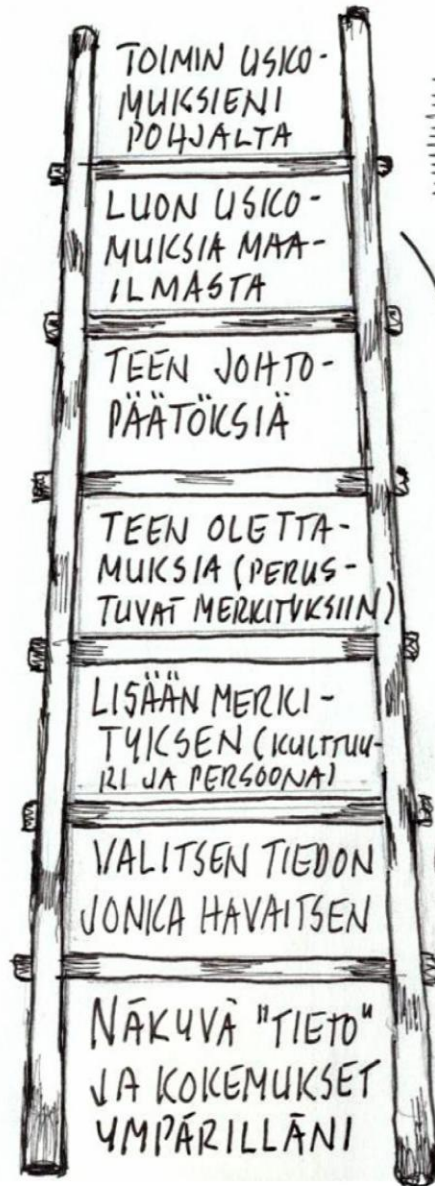 TOIMIN USKO-
MUKSIENI
POHJALTA
LUON USKO-
MUKSIA MAA-
ILMASTA
TEEN JOHTO-
PÄÄTÖKSIÄ
TEEN OLETTA-
MUKSIA (PERUS-
TUVAT MERKITYKSIIN)
LISÄÄN MERKI-
TYKSEN (KULTTUU-
RI JA PERSOONA)
VALITSEN TIEDON
JONKA HAVAITSEN
NÄKYVÄ "TIETO"
JA KOKEMUKSET
YMPÄRILLÄNI